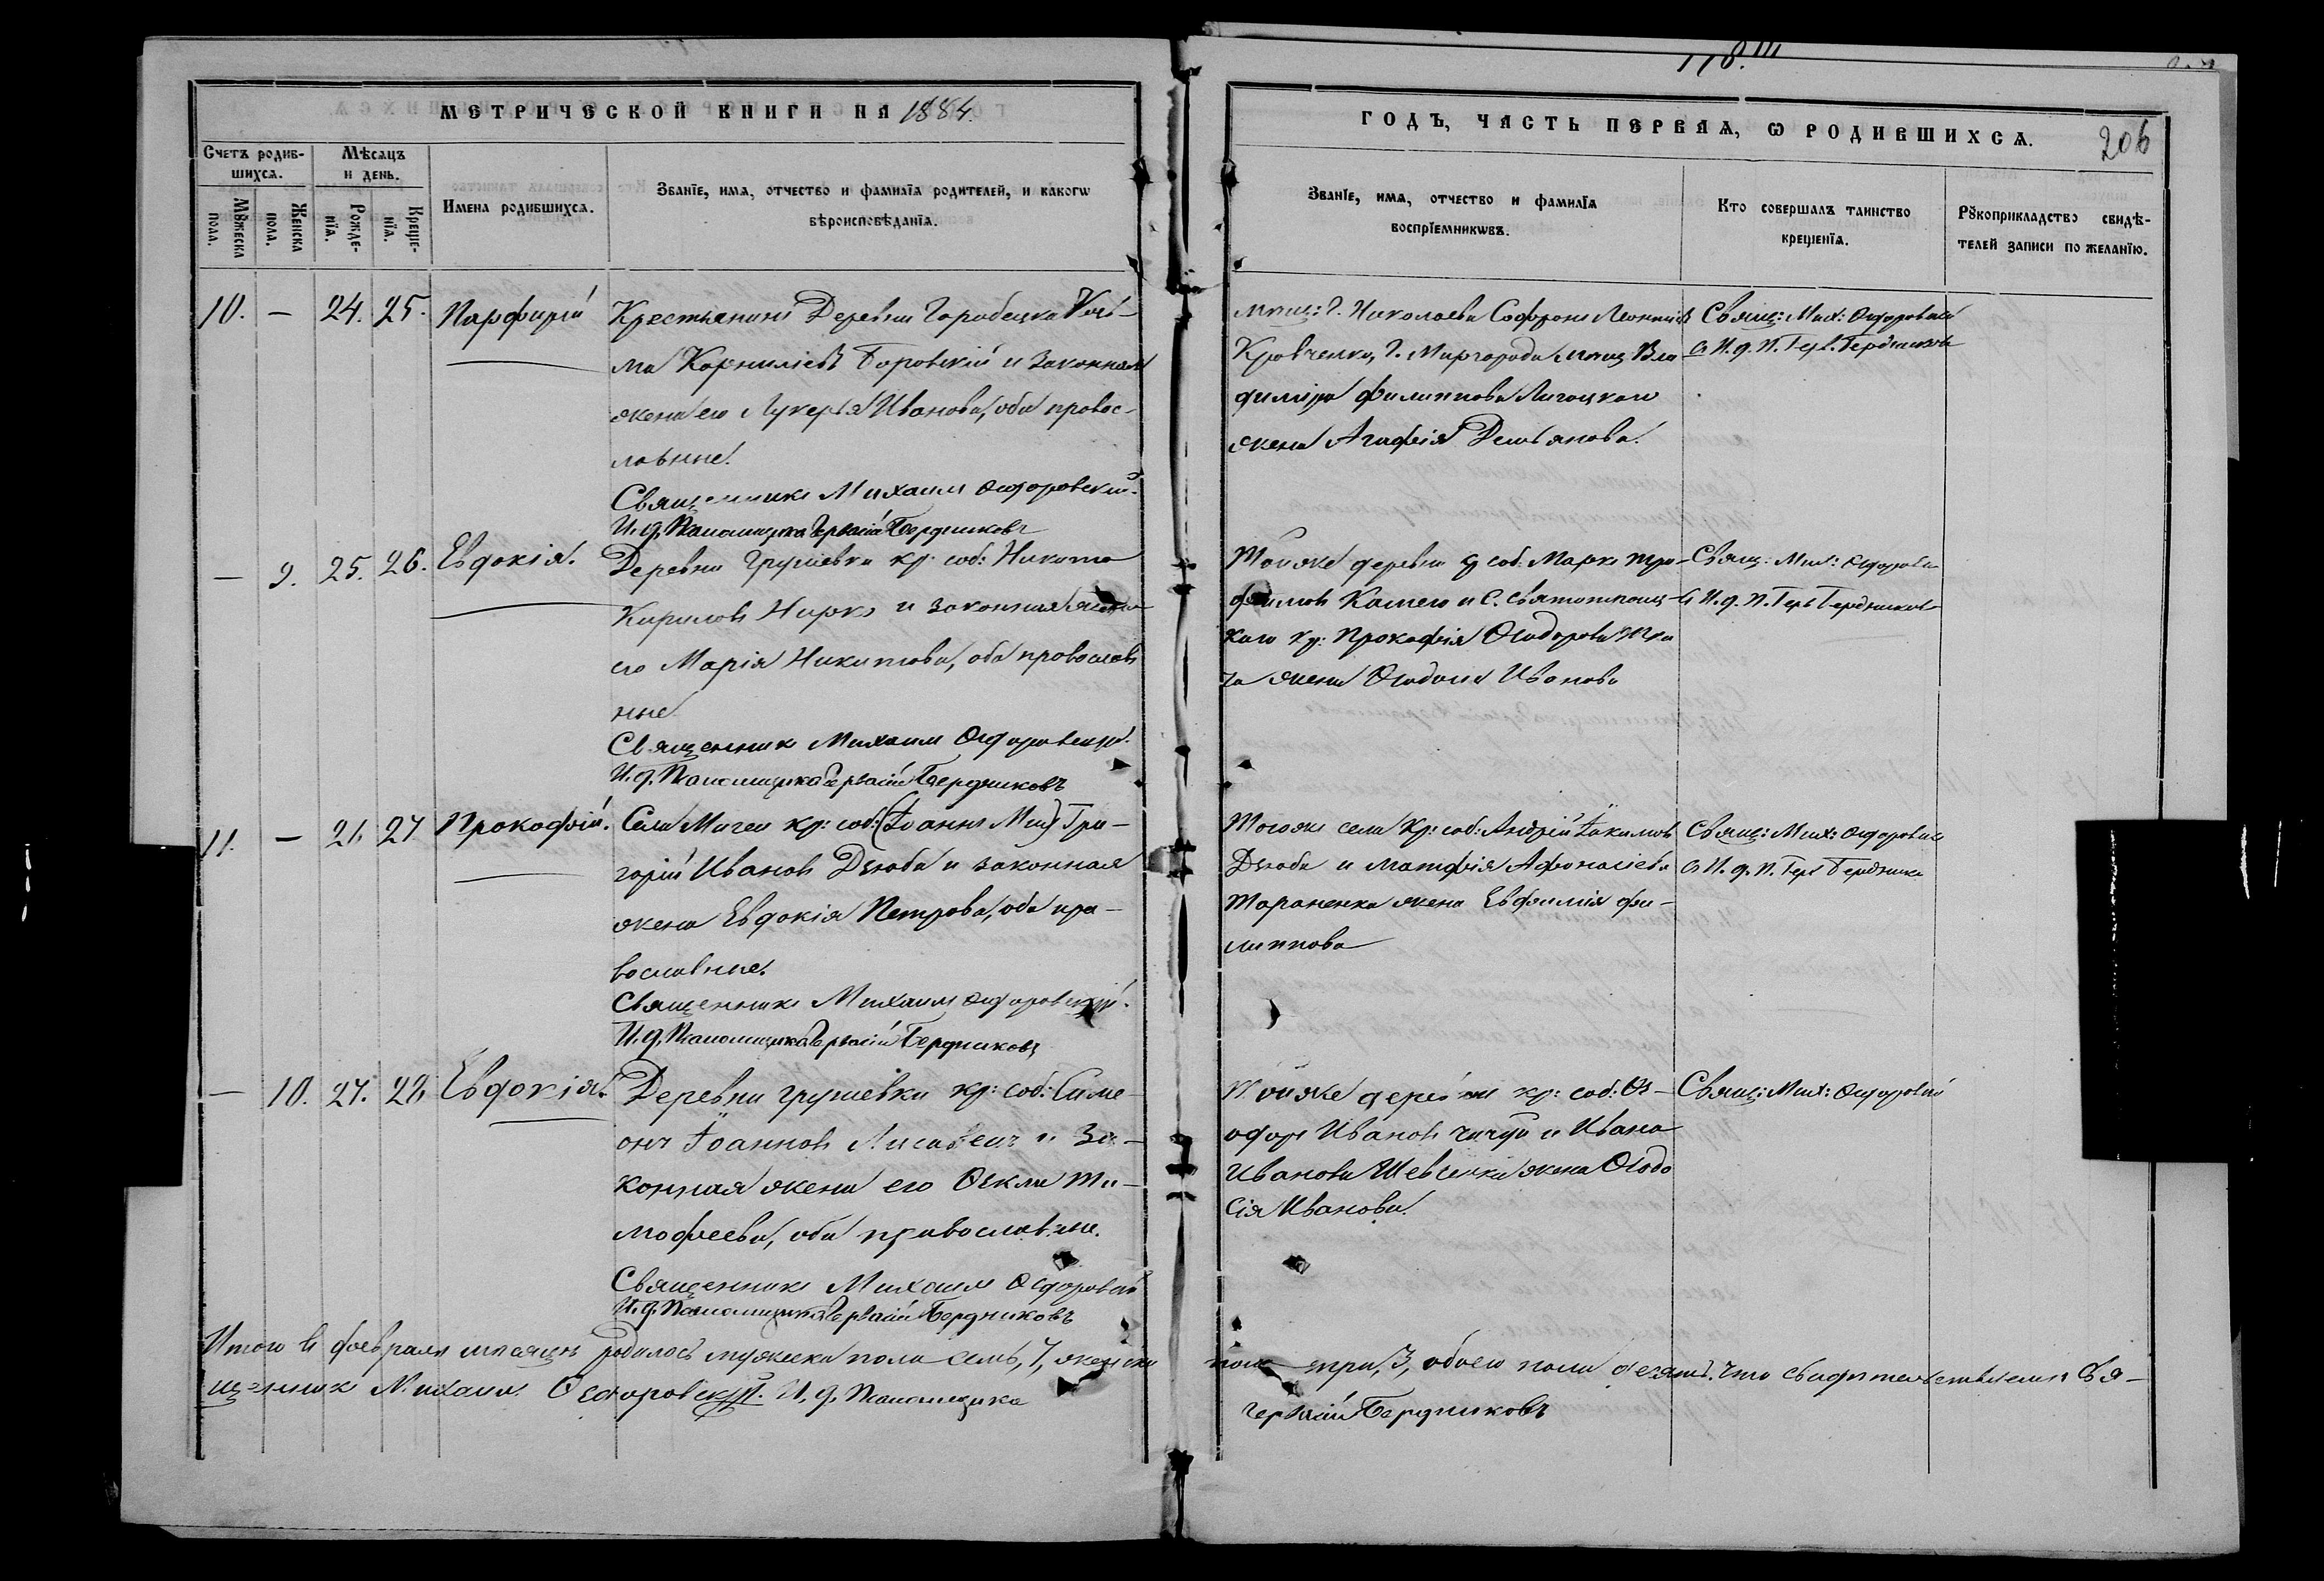 118.
МЕТРИЧЕСКОЙ КНИГИ НА 1884.
ГОДЪ, ЧАСТЬ ПЕРВАЯ, Ѡ РОДИВШИХСѦ.
206
Счетъ родив-
шихсѧ.
Мѣсѧцъ
и день.
Мꙋжеска
пола.
Женска
пола.
Рожде-
нїѧ.
Креще-
нїѧ.
Имена родившихсѧ.
Званїе, имѧ, отчество и фамилїѧ родителей, и какогѡ
вѣроисповѣданїѧ.
Званїе, имѧ, отчество и фамилїѧ
воспрїемникѡвъ.
Кто совершалъ таинство
крещенїѧ.
Рꙋкоприкладство свидѣ-
телей записи по желанїю.
10. — 24. 25. Парфирій
Крестьянинъ Деревни Козь-
ма Корниліевъ Боровскій и законная
жена его Лукерья Иванова, оба правос-
лавные.
Священникъ Михаилъ Ѳедоровскій.
И. д. Псаломщика Гервасій Бердниковъ
мѣщ: г. Николаева Софроній
Кравченко, г. Миргорода мѣщ. Вла-
диміра Филиппова
жена Агафія Демьянова.
Свящ: Мих: Ѳедоровскій
съ И. д. П. Герв. Бердниковъ
— 9. 25. 26. Евдокія.
Деревни Грушевки кр: соб: Никита
Кирилов и законная жена
его Марія Никитова, оба православ
ные
Священник Михаил Ѳедоровскій.
И. д. Псаломщика Гервасій Бердниковъ
Тойже деревни кр соб: Марко Тро-
фимов и С. Святотроиц-
каго кр: Прокофія Ѳеодорова
жена Иванова
Свящ: Мих: Ѳедоровскій
съ И. д. П. Герв Бердников
11. — 26. 27 Прокофій.
Села Мигеи кр: соб: (Іоаннъ) Гри-
горій Иванов Дзюба и законная
жена Евдокія Петрова, оба пра-
вославные.
Священникъ Михаилъ Ѳедоровскій.
И. д. Псаломщика Гервасій Бердниковъ
Тогоже села Кр: соб: Андрей Іакимовъ
Дзюба и Матфія Афонасіева
Тараненка жена Евфимія Фи-
липпова
Свящ: Мих: Ѳедоровскій
съ И. д. П. Герв Бердников
— 10. 27. 28. Евдокія.
Деревни Грушевки кр: соб: Симе-
онъ Іоаннов и за-
конная жена его Ѳекла Ти-
мофеева, оба православные.
Священникъ Михаилъ Ѳедоровскій
И. д. Псаломщика Гервасій Бердниковъ
Тойже деревни кр: соб: Ѳе-
одоръ Иванов и Ивана
Иванова Шевченка жена Ѳеодо
сія Иванова.
Свящ: Мих: Ѳедоровскій
Итого в феврале месяце родилось мужеска пола семь, 7, женска пола три, 3, обоего пола десять. Что свидетельствуемъ: Свя-
щенникъ Михаилъ Ѳеодоровскій. И. д. Псаломщика Гервасій Бердниковъ